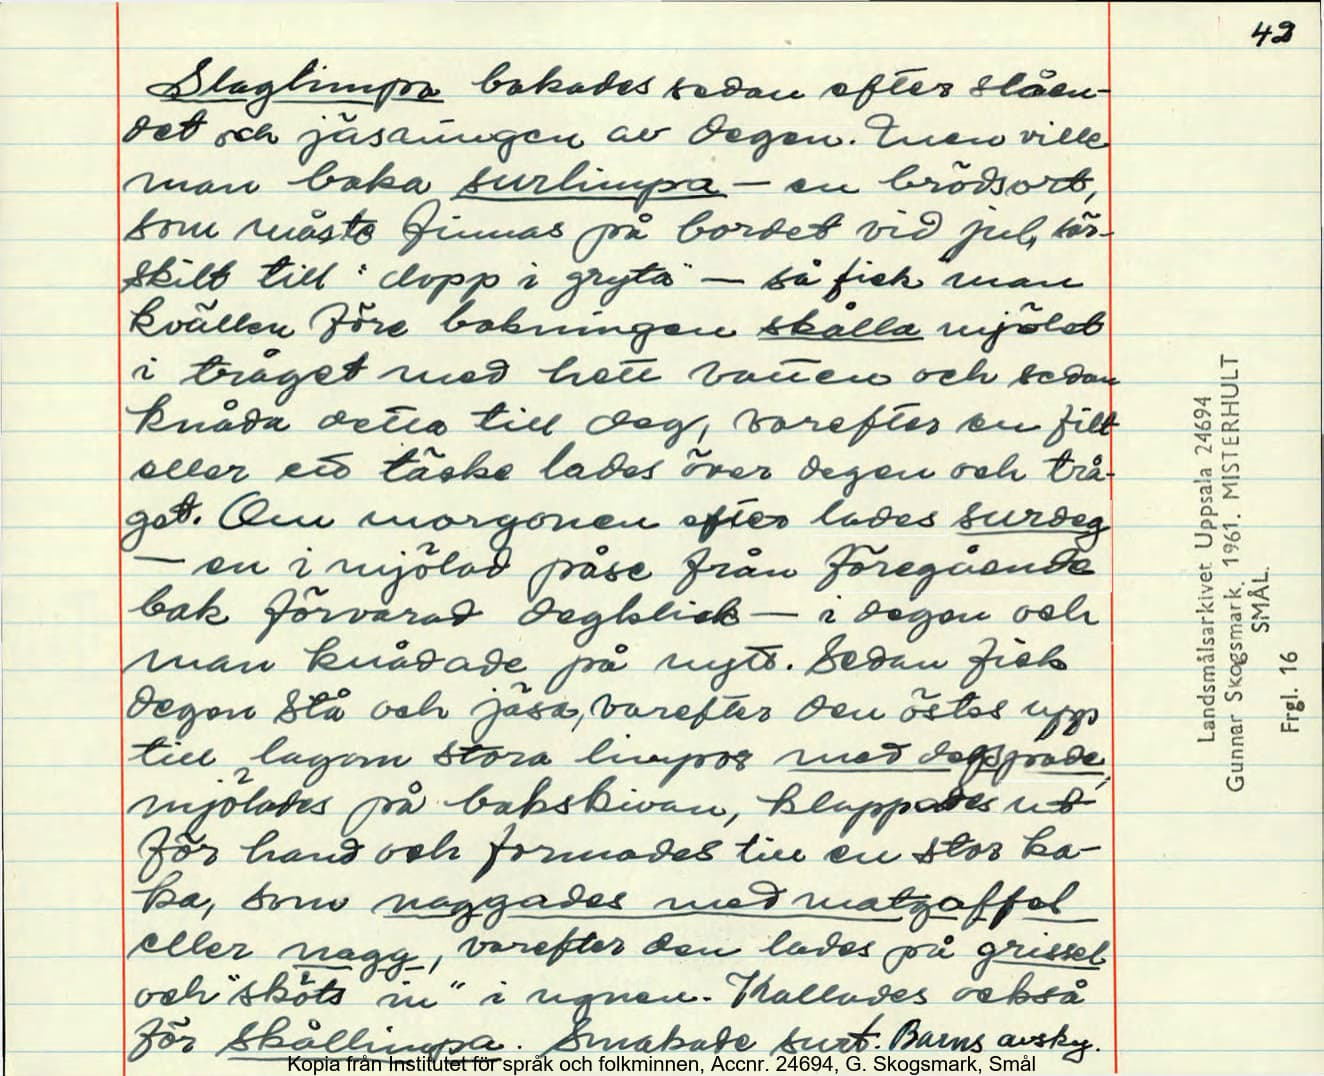 42
Slaglimpa bakades sedan efter slåen-
det och jäsningen av degen. Men ville
man baka surlimpa – en brödsort,
som måste finnas på bordet vid jul, sär-
skilt till "dopp i gryta" – så fick man
kvällen före bakningen skålla mjölet
i tråget med hett vatten och sedan
knåda detta till deg, varefter en filt
eller ett täcke lades över degen och trå-
get. Om morgonen efter lades surdeg
– en i mjölad påse från föregående
bak förvarad degklick – i degen och
man knådade på nytt. Sedan fick
degen stå och jäsa, varefter den östes upp
till lagom stora limpor med degspade,
mjölades på bakskivan, klappades ut
för hand och formades till en stor ka-
ka, som naggades med matgaffel
eller nagg, varefter den lades på grissel
och "sköts in" i ugnen. Kallades också
för skållimpa. Smakade surt. Barns avsky.
Landsmålsarkivet Uppsala 24694
Gunnar Skogsmark. 1961. MISTERHULT
SMÅL.
Frgl. 16
Kopia från Institutet för språk och folkminnen, Accnr. 24694, G. Skogsmark, Smål